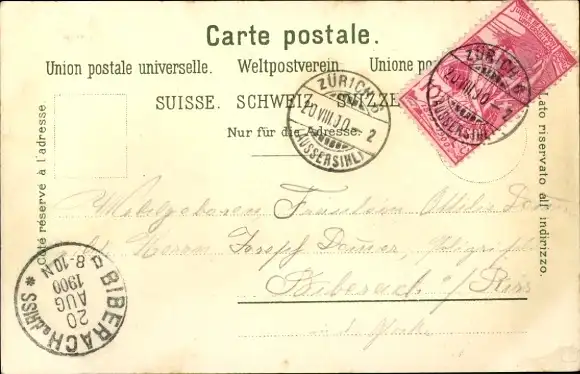 Carte postale.
Union postale universelle. Weltpostverein. Unione po
SUISSE. SCHWEIZ. SVIZZE
Nur für die Adresse.
Côté réservé à l'adresse.
Lato riservato all' indirizzo.
ZÜRICH 6
20.VIII.00 - 2
(AUSSERSIHL)
ZÜRICH 6
20.VIII.00 - 2
(AUSSERSIHL)
10
Wohlgeboren Fräulein Ottilie
Herrn Josef
Biberach a/Riss
BIBERACH a.d.RISS
20
AUG
1900
8-10 N